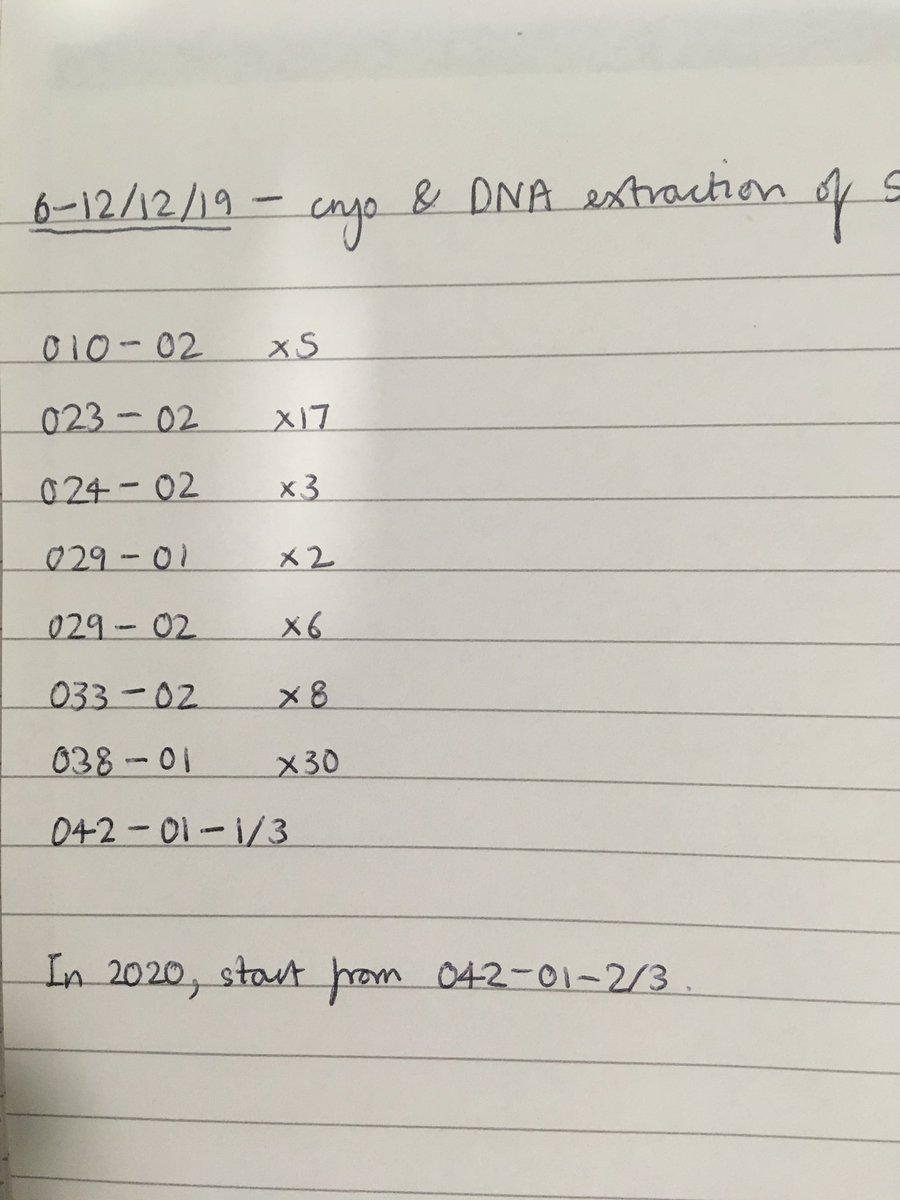 6-12/12/19 - cryo & DNA extraction of S
010-02 x5
023-02 x17
024-02 x3
029-01 x2
029-02 x6
033-02 x8
038-01 x30
042-01-1/3
In 2020, start from 042-01-2/3.